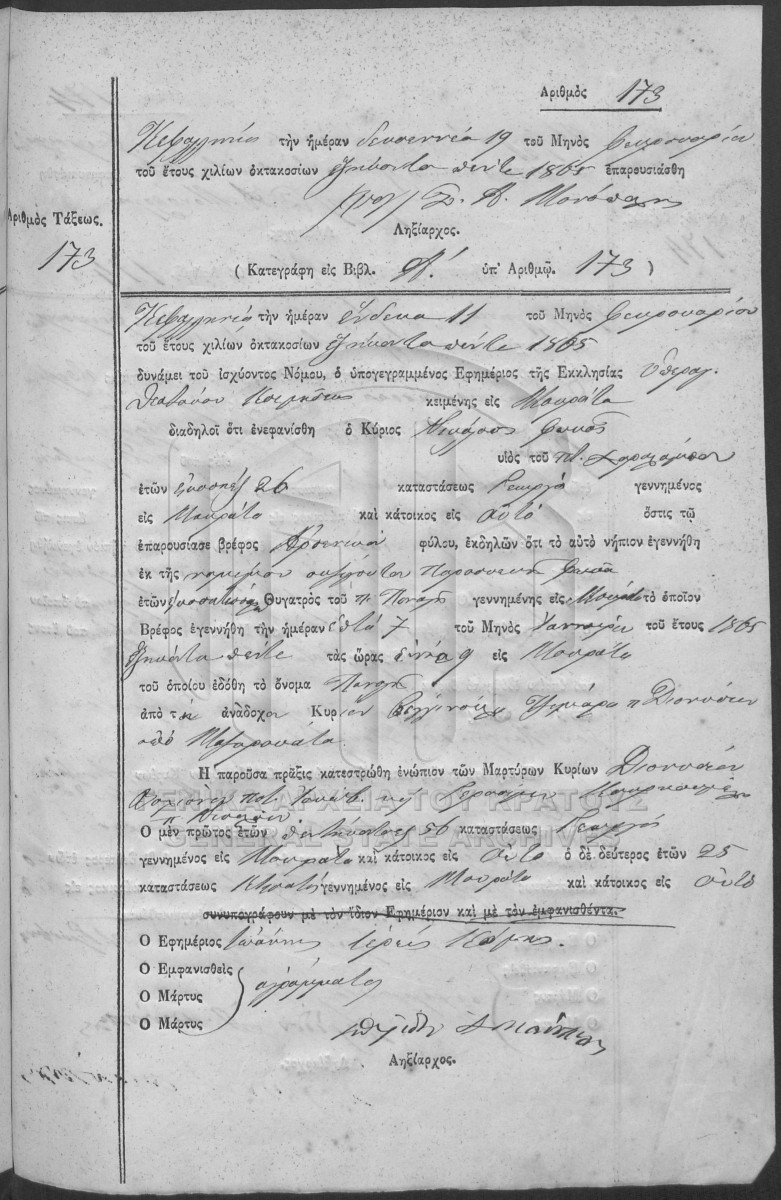 Αριθμὸς 173
Κεφαλληνία τὴν ἡμέραν δεκαεννέα 19 τοῦ Μηνὸς Φεβρουαρίου
τοῦ ἔτους χιλίων ὀκτακοσίων ἑξήκοντα πέντε 1865 ἐπαρουσιάσθη
Ληξίαρχος.
Αριθμὸς Τάξεως.
173
( Κατεγράφη εἰς Βιβλ. Α΄. ὑπ' Αριθμῷ. 173 )
Κεφαλληνία τὴν ἡμέραν ἕνδεκα 11 τοῦ Μηνὸς Φεβρουαρίου
τοῦ ἔτους χιλίων ὀκτακοσίων ἑξήκοντα πέντε 1865
δυνάμει τοῦ ἰσχύοντος Νόμου, ὁ ὑπογεγραμμένος Εφημέριος τῆς Εκκλησίας Υπεραγ.
Θεοτόκου Κοιμήσεως κειμένης εἰς Μουζάτα
διαδηλοῖ ὅτι ἐνεφανίσθη ὁ Κύριος Νικόλαος Φωκᾶς
υἱὸς τοῦ ποτ. Χαραλάμπου
ἐτῶν εἰκοσιέξ 26 καταστάσεως Γεωργὸς γεννημένος
εἰς Μουζάτα καὶ κάτοικος εἰς αὐτὸ ὅστις τῷ
ἐπαρουσίασε βρέφος Αρσενικοῦ φύλου, ἐκδηλῶν ὅτι τὸ αὐτὸ νήπιον ἐγεννήθη
ἐκ τῆς νομίμου συζύγου του Παρασκευῆς Φωκᾶ
ἐτῶν Θυγατρὸς τοῦ π. Παναγῆ γεννημένης εἰς Μουζάτα τὸ ὁποῖον
Βρέφος ἐγεννήθη τὴν ἡμέραν ἑπτὰ 7 τοῦ Μηνὸς Ιαννουαρίου τοῦ ἔτους 1865
ἑξήκοντα πέντε τὰς ὥρας ἐννέα 9 εἰς Μουζάτα
τοῦ ὁποίου ἐδόθη τὸ ὄνομα Παναγῆς
ἀπὸ τὸν ἀνάδοχον Κυρίον π. Διονυσίου
ἀπὸ Μαζαρακάτα.
Η παροῦσα πρᾶξις κατεστρώθη ἐνώπιον τῶν Μαρτύρων Κυρίων Διονυσίου
ποτ. Γεράσιμον
Ο μὲν πρῶτος ἐτῶν πεντήκοντα ἓξ 56 καταστάσεως Γεωργὸς
γεννημένος εἰς Μουζάτα καὶ κάτοικος εἰς αὐτὸ ὁ δὲ δεύτερος ἐτῶν 25
καταστάσεως Κτηματίας γεννημένος εἰς Μουζάτα καὶ κάτοικος εἰς αὐτὸ
συνυπογράφουν μὲ τὸν ἴδιον Εφημέριον καὶ μὲ τὸν ἐμφανισθέντα.
Ο Εφημέριος Ἰωάννης ἱερεὺς
Ο Εμφανισθεὶς
Ο Μάρτυς ἀγράμματοι
Ο Μάρτυς
Ληξίαρχος.
ΓΕΝΙΚΑ ΑΡΧΕΙΑ ΤΟΥ ΚΡΑΤΟΥΣ
GENERAL STATE ARCHIVES